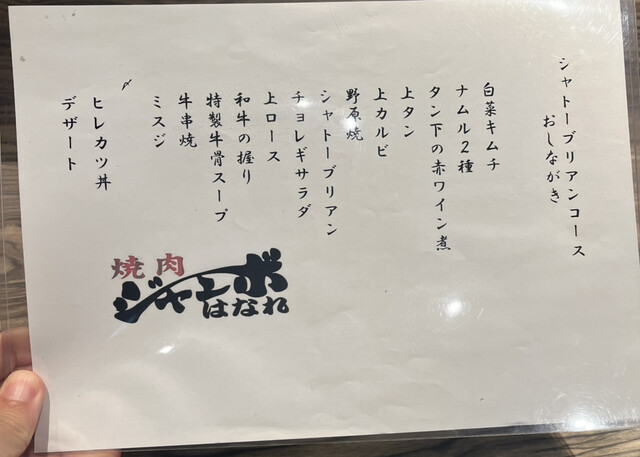 シャトーブリアンコース
おしながき
白菜キムチ
ナムル2種
タン下の赤ワイン煮
上タン
上カルビ
野原焼
シャトーブリアン
チョレギサラダ
上ロース
和牛の握り
特製牛骨スープ
牛串焼
ミスジ
〆
ヒレカツ丼
デザート
焼肉
ジャンボ
はなれ